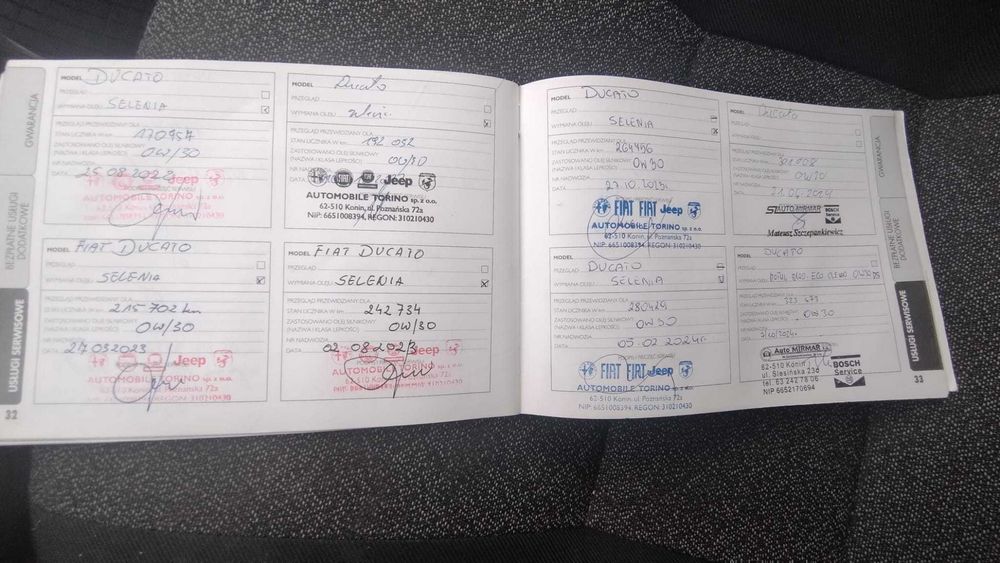 GWARANCJA
BEZPŁATNE USŁUGI
DODATKOWE
USŁUGI SERWISOWE
32
MODEL DUCATO
PRZEGLĄD
WYMIANA OLEJU SELENIA
PRZEGLĄD PRZEWIDZIANY DLA
STAN LICZNIKA W km 170957
ZASTOSOWANO OLEJ SILNIKOWY
(NAZWA I KLASA LEPKOŚCI) 0W/30
NR NADWOZIA
DATA 25.08.2022
Jeep
AUTOMOBILE TORINO sp. z o.o.
MODEL Ducato
PRZEGLĄD
WYMIANA OLEJU
PRZEGLĄD PRZEWIDZIANY DLA
STAN LICZNIKA W km 192 052
ZASTOSOWANO OLEJ SILNIKOWY
(NAZWA I KLASA LEPKOŚCI)
NR NADWOZIA
FIAT Jeep
AUTOMOBILE TORINO sp. z o.o.
62-510 Konin, ul. Poznańska 72a
NIP: 6651008394, REGON: 310210430
MODEL FIAT DUCATO
PRZEGLĄD
WYMIANA OLEJU SELENIA
PRZEGLĄD PRZEWIDZIANY DLA
STAN LICZNIKA W km 215 702 km
ZASTOSOWANO OLEJ SILNIKOWY
(NAZWA I KLASA LEPKOŚCI) 0W/30
NR NADWOZIA
DATA 27.03.2023
Jeep
AUTOMOBILE TORINO sp. z o.o.
62-510 Konin, ul. Poznańska 72a
MODEL FIAT DUCATO
PRZEGLĄD
WYMIANA OLEJU SELENIA
PRZEGLĄD PRZEWIDZIANY DLA
STAN LICZNIKA W km 242 734
ZASTOSOWANO OLEJ SILNIKOWY
(NAZWA I KLASA LEPKOŚCI) 0W/30
NR NADWOZIA
DATA 02.08.2023
Jeep
AUTOMOBILE TORINO sp. z o.o.
MODEL DUCATO
PRZEGLĄD
WYMIANA OLEJU SELENIA
PRZEGLĄD PRZEWIDZIANY DLA
STAN LICZNIKA W km
ZASTOSOWANO OLEJ SILNIKOWY
(NAZWA I KLASA LEPKOŚCI) 0W30
NR NADWOZIA
DATA
FIAT FIAT Jeep
AUTOMOBILE TORINO sp. z o.o.
62-510 Konin, ul. Poznańska 72a
NIP: 6651008394, REGON: 310210430
MODEL DUCATO
PRZEGLĄD
WYMIANA OLEJU SELENIA
PRZEGLĄD PRZEWIDZIANY DLA
STAN LICZNIKA W km 280429
ZASTOSOWANO OLEJ SILNIKOWY
(NAZWA I KLASA LEPKOŚCI) 0W30
NR NADWOZIA
DATA 05.02.2024r
FIAT FIAT Jeep
AUTOMOBILE TORINO sp. z o.o.
62-510 Konin, ul. Poznańska 72a
NIP: 6651008394, REGON: 310210430
MODEL Ducato
PRZEGLĄD
WYMIANA OLEJU
PRZEGLĄD PRZEWIDZIANY DLA
STAN LICZNIKA W km
ZASTOSOWANO OLEJ SILNIKOWY
(NAZWA I KLASA LEPKOŚCI)
NR NADWOZIA
DATA
AUTO MIRMAR
BOSCH
Service
Mateusz Szczepankiewicz
MODEL DUCATO
PRZEGLĄD
WYMIANA OLEJU
PRZEGLĄD PRZEWIDZIANY DLA
STAN LICZNIKA W km
ZASTOSOWANO OLEJ SILNIKOWY
(NAZWA I KLASA LEPKOŚCI) 0W30
NR NADWOZIA
Auto MIRMAR
62-510 Konin
ul. Ślesińska 23d
tel. 63 242 78 06
NIP 6652170694
BOSCH
Service
GWARANCJA
BEZPŁATNE USŁUGI
DODATKOWE
USŁUGI SERWISOWE
33